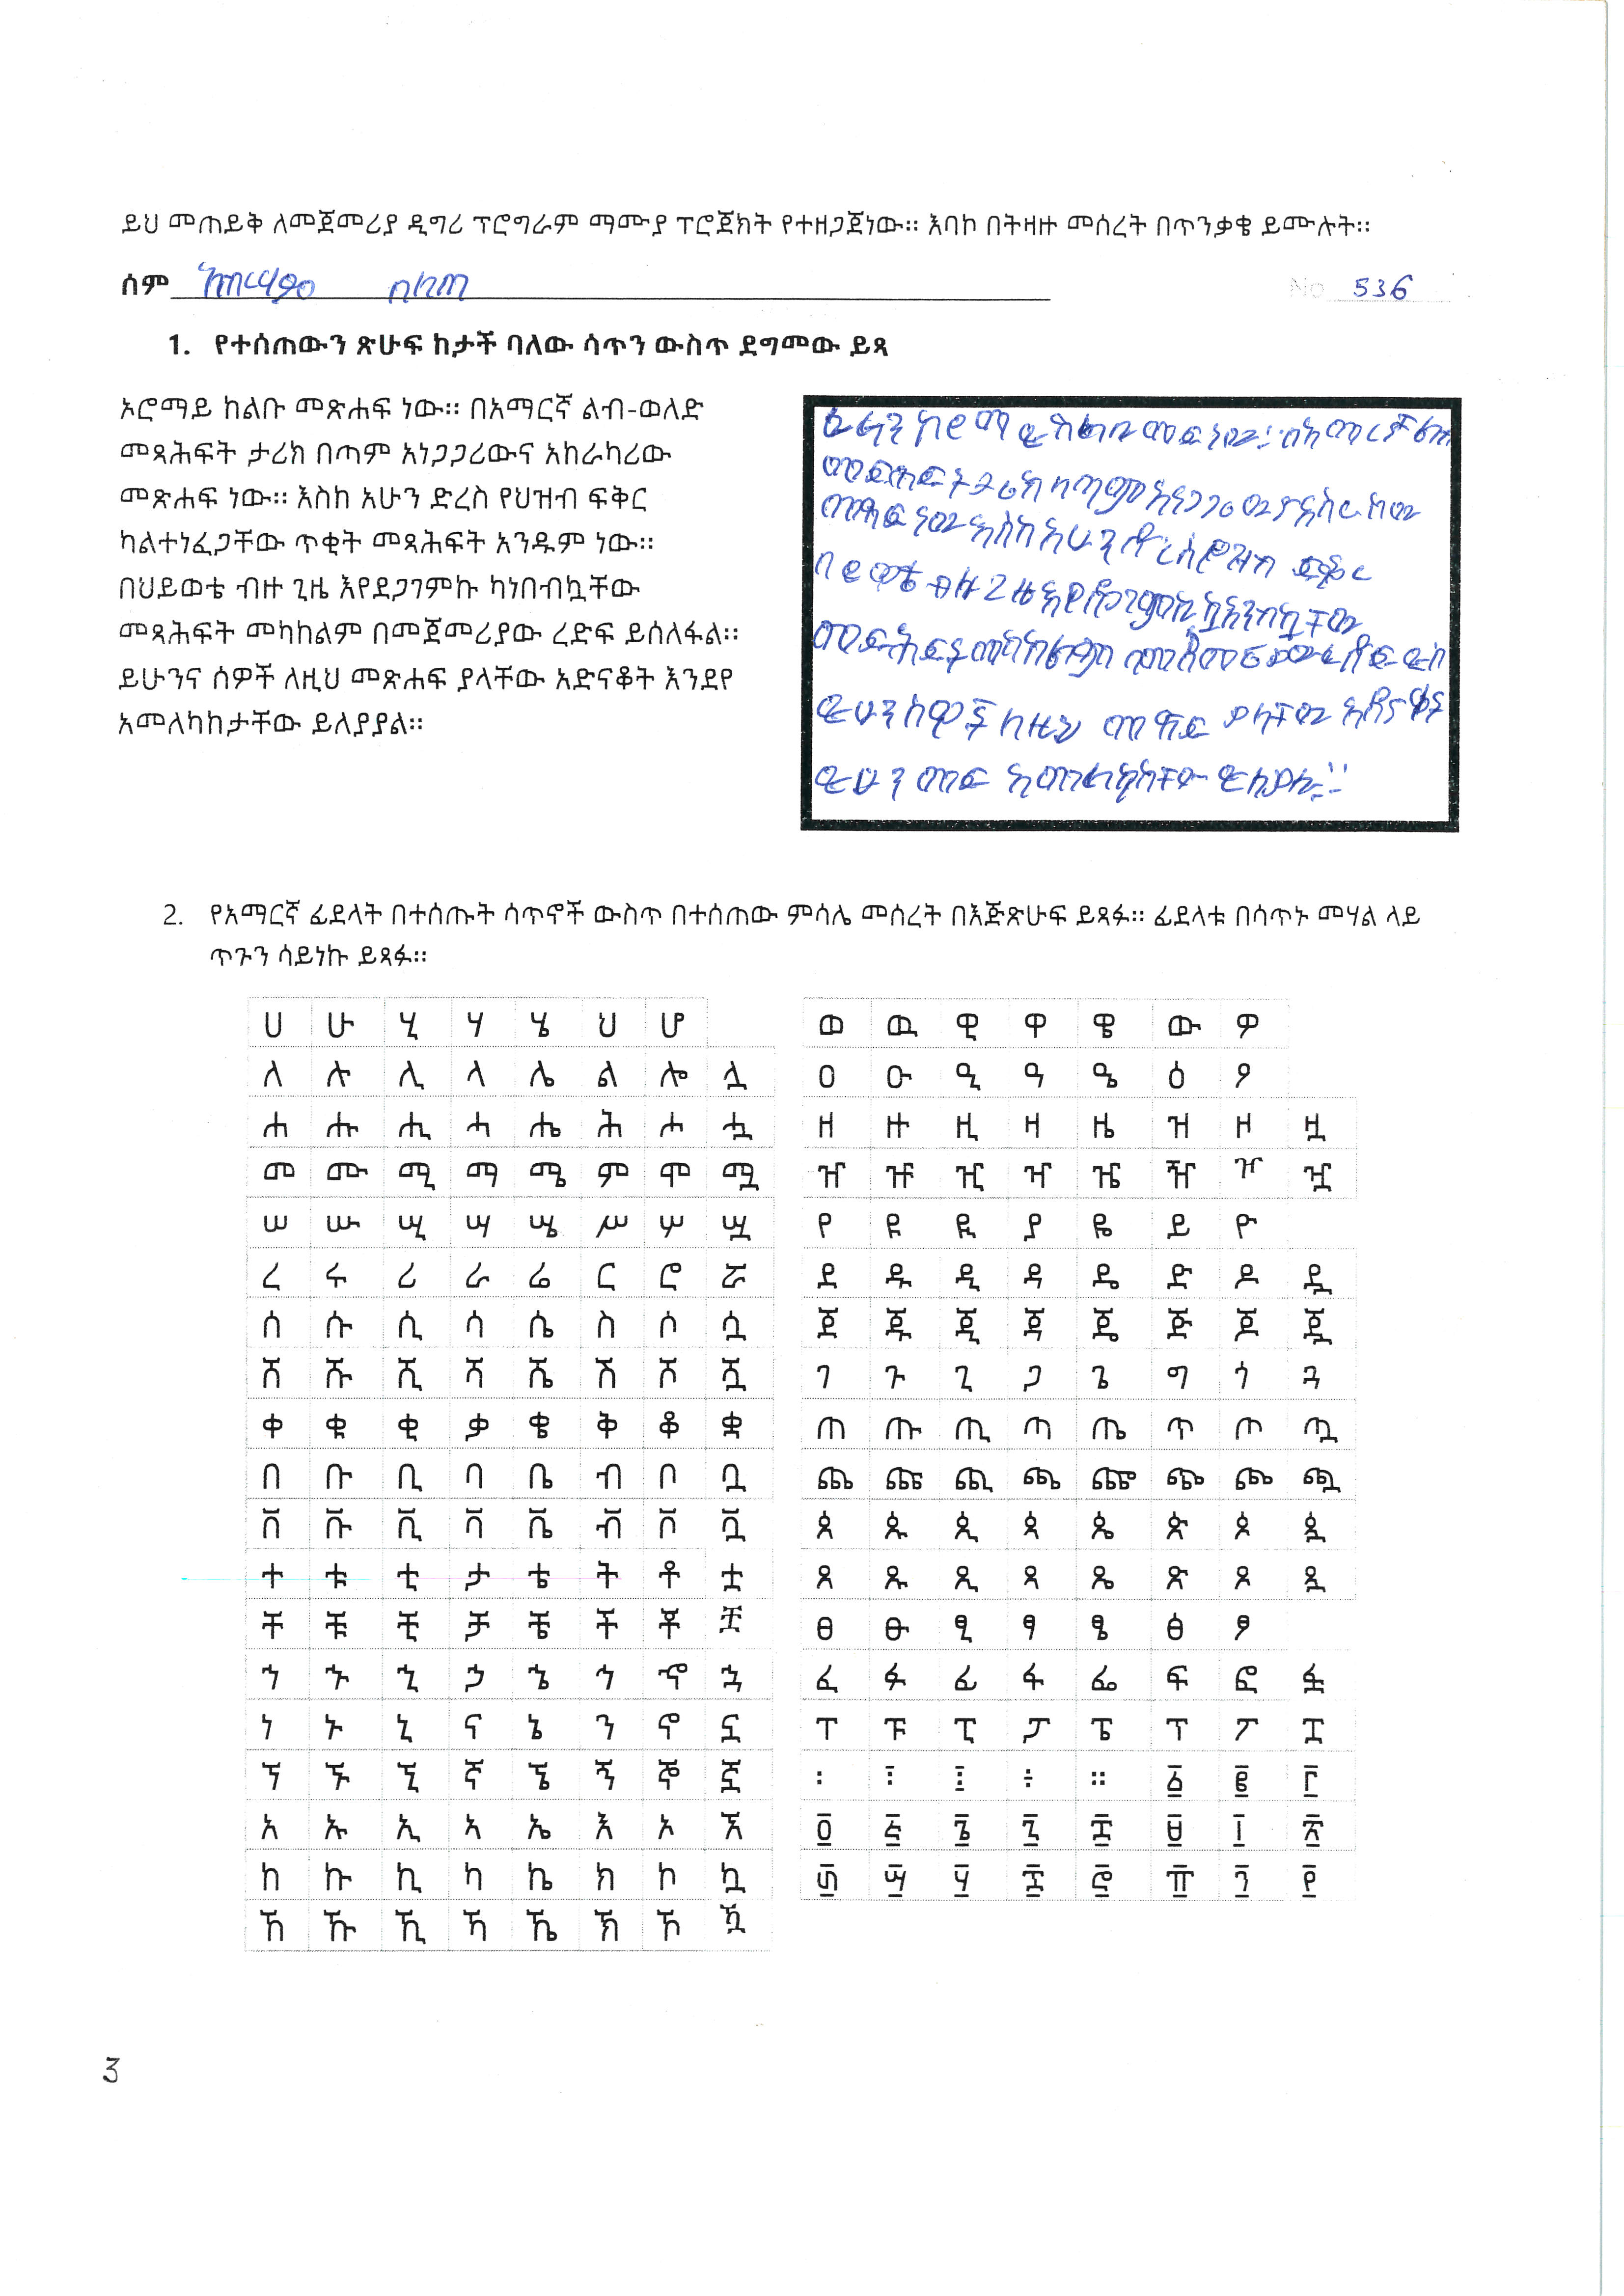 ይህ መጠይቅ ለመጀመሪያ ዲግሪ ፕሮግራም ማሙያ ፕሮጀክት የተዘጋጀነው። እባኮ በትዛዙ መሰረት በጥንቃቄ ይሙሉት።
ስም
No 536
1. የተሰጠውን ጽሁፍ ከታች ባለው ሳጥን ውስጥ ደግመው ይጻ
ኦሮማይ ከልቡ መጽሐፍ ነው። በአማርኛ ልብ-ወለድ
መጻሕፍት ታሪክ በጣም አነጋጋሪውና አከራካሪው
መጽሐፍ ነው። እስከ አሁን ድረስ የህዝብ ፍቅር
ካልተነፈጋቸው ጥቂት መጻሕፍት አንዱም ነው።
በህይወቴ ብዙ ጊዜ እየደጋገምኩ ካነበብኳቸው
መጻሕፍት መካከልም በመጀመሪያው ረድፍ ይሰለፋል።
ይሁንና ሰዎች ለዚህ መጽሐፍ ያላቸው አድናቆት እንደየ
አመለካከታቸው ይለያያል።
2. የአማርኛ ፊደላት በተሰጡት ሳጥኖች ውስጥ በተሰጠው ምሳሌ መሰረት በእጅጽሁፍ ይጻፉ። ፊደላቱ በሳጥኑ መሃል ላይ
ጥጉን ሳይነኩ ይጻፉ።
ሀ ሁ ሂ ሃ ሄ ህ ሆ
ለ ሉ ሊ ላ ሌ ል ሎ ሏ
ሐ ሑ ሒ ሓ ሔ ሕ ሖ ሗ
መ ሙ ሚ ማ ሜ ም ሞ ሟ
ሠ ሡ ሢ ሣ ሤ ሥ ሦ ሧ
ረ ሩ ሪ ራ ሬ ር ሮ ሯ
ሰ ሱ ሲ ሳ ሴ ስ ሶ ሷ
ሸ ሹ ሺ ሻ ሼ ሽ ሾ ሿ
ቀ ቁ ቂ ቃ ቄ ቅ ቆ ቋ
በ ቡ ቢ ባ ቤ ብ ቦ ቧ
ቨ ቩ ቪ ቫ ቬ ቭ ቮ ቯ
ተ ቱ ቲ ታ ቴ ት ቶ ቷ
ቸ ቹ ቺ ቻ ቼ ች ቾ ቿ
ኀ ኁ ኂ ኃ ኄ ኅ ኆ ኋ
ነ ኑ ኒ ና ኔ ን ኖ ኗ
ኘ ኙ ኚ ኛ ኜ ኝ ኞ ኟ
አ ኡ ኢ ኣ ኤ እ ኦ ኧ
ከ ኩ ኪ ካ ኬ ክ ኮ ኳ
ኸ ኹ ኺ ኻ ኼ ኽ ኾ ዃ
ወ ዉ ዊ ዋ ዌ ው ዎ
ዐ ዑ ዒ ዓ ዔ ዕ ዖ
ዘ ዙ ዚ ዛ ዜ ዝ ዞ ዟ
ዠ ዡ ዢ ዣ ዤ ዥ ዦ ዧ
የ ዩ ዪ ያ ዬ ይ ዮ
ደ ዱ ዲ ዳ ዴ ድ ዶ ዷ
ጀ ጁ ጂ ጃ ጄ ጅ ጆ ጇ
ገ ጉ ጊ ጋ ጌ ግ ጎ ጓ
ጠ ጡ ጢ ጣ ጤ ጥ ጦ ጧ
ጨ ጩ ጪ ጫ ጬ ጭ ጮ ጯ
ጰ ጱ ጲ ጳ ጴ ጵ ጶ ጷ
ጸ ጹ ጺ ጻ ጼ ጽ ጾ ጿ
ፀ ፁ ፂ ፃ ፄ ፅ ፆ
ፈ ፉ ፊ ፋ ፌ ፍ ፎ ፏ
ፐ ፑ ፒ ፓ ፔ ፕ ፖ ፗ
፡ ፤ ፥ ፦ ። ፩ ፪ ፫
፬ ፭ ፮ ፯ ፰ ፱ ፲ ፳
፴ ፵ ፶ ፷ ፸ ፹ ፺ ፻
3